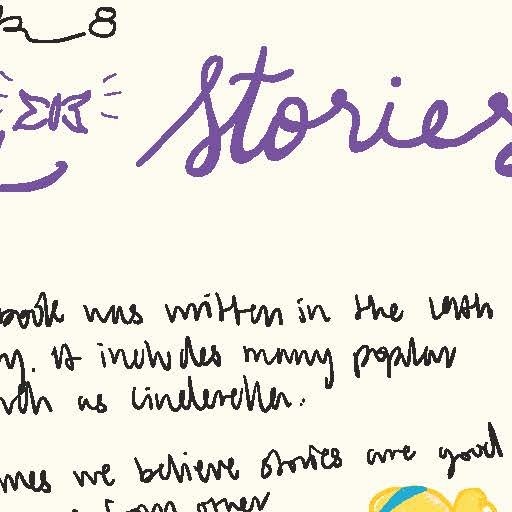 8
Stories
book was written in the 19th
y. It includes many popular
such as Cinderella.
mes we believe stories are good
from other